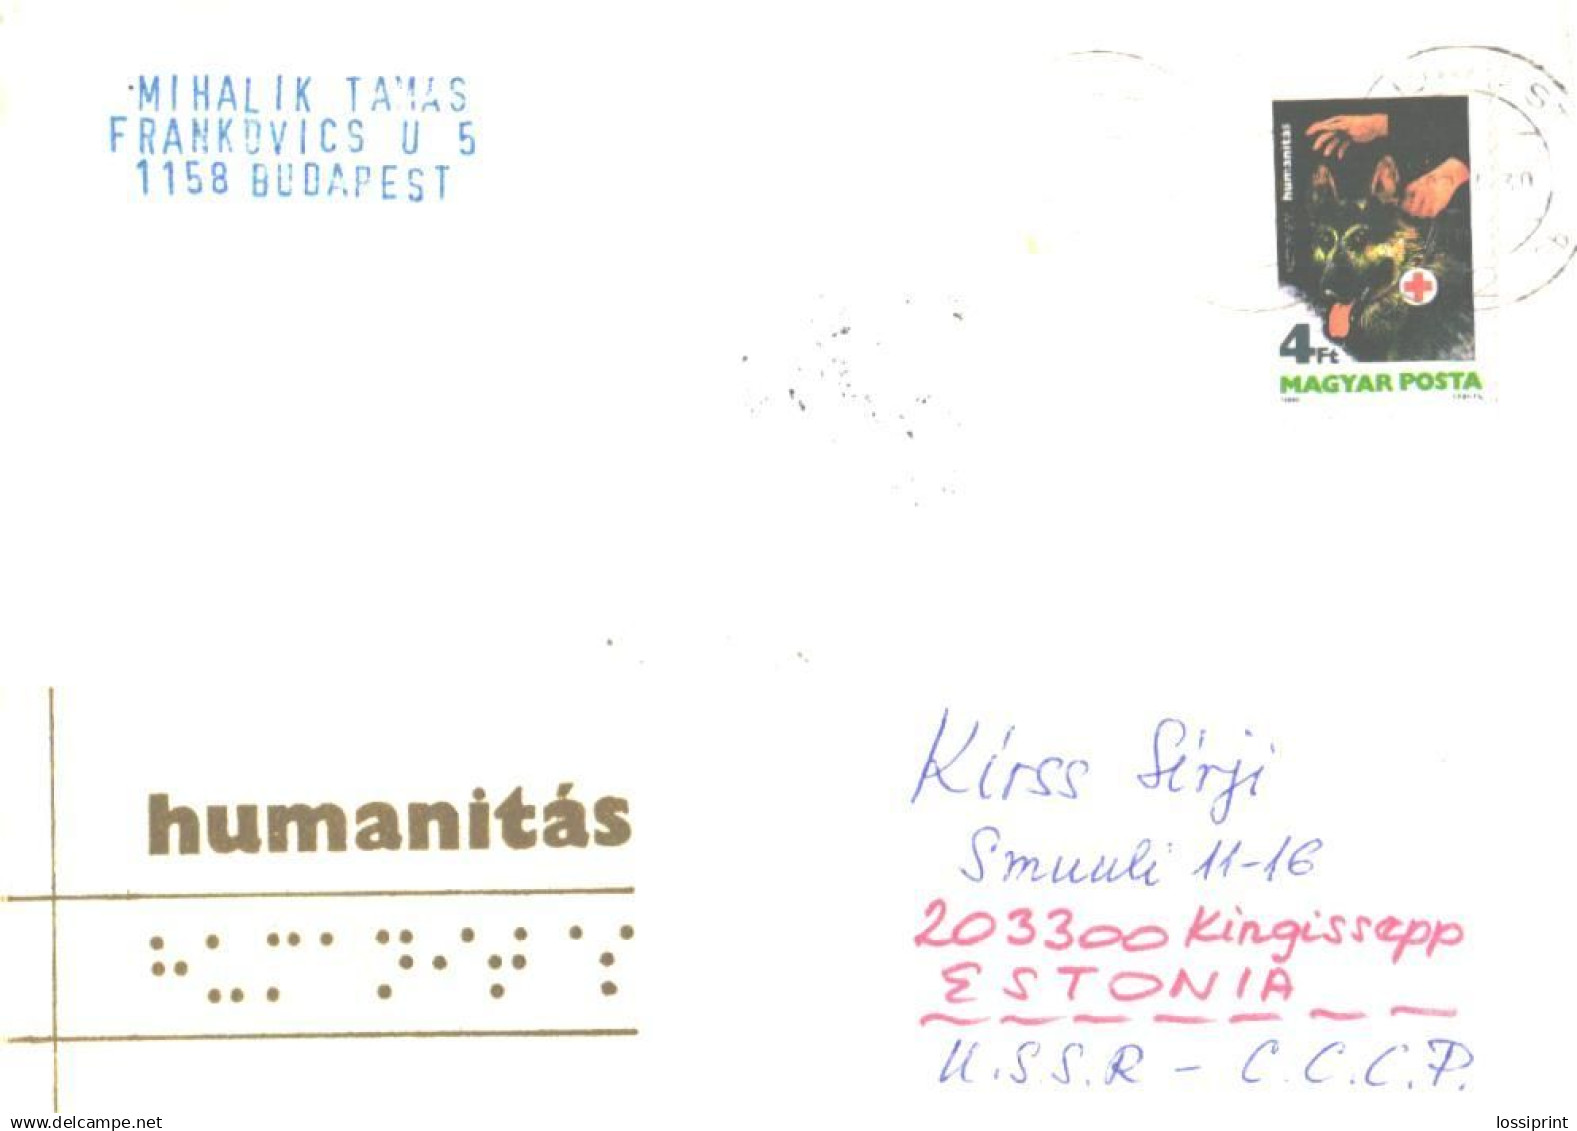 MIHALIK TAMAS
FRANKOVICS U 5
1158 BUDAPEST
humanitás
4Ft
MAGYAR POSTA
humanitás
⠓⠥⠍⠁⠝⠊⠞⠁⠎
Kirss Sirji
Smuuli 11-16
203300 Kingissepp
ESTONIA
U.S.S.R - C.C.C.P.
www.delcampe.net
lossiprint